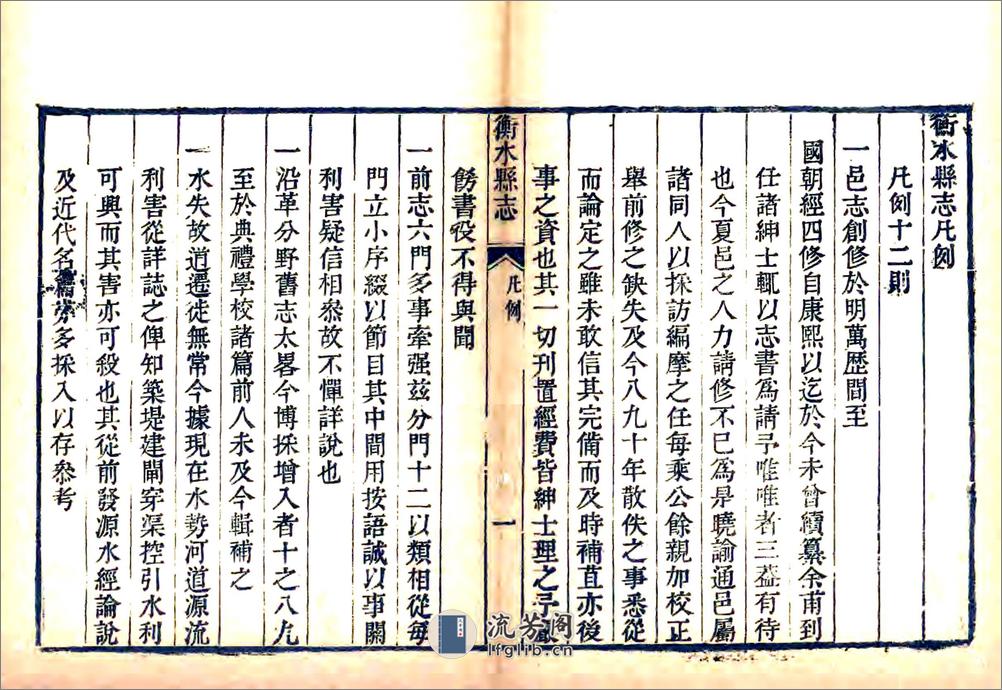 衡水縣志凡例
凡例十二則
一邑志創修於明萬歷間至
國朝經四修自康熙以迄於今未曾續纂余甫到
任諸紳士輒以志書為請予唯唯者三葢有待
也今夏邑之人力請修不已為是曉諭通邑屬
諸同人以採訪編摩之任每乘公餘親加校正
舉前修之缺失及今八九十年散佚之事悉從
而論定之雖未敢信其完備而及時補苴亦後
事之資也其一切刊置經費皆紳士理之予
衡水縣志
凡例
一
餝書役不得與聞
一前志六門多事牽强茲分門十二以類相從每
門立小序綴以節目其中間用按語誠以事關
利害疑信相叅故不憚詳說也
一沿革分野舊志太畧今博採增入者十之八九
至於典禮學校諸篇前人未及今輯補之
一水失故道遷徙無常今據現在水勢河道源流
利害從詳誌之俾知築堤建閘穿渠控引水利
可興而其害亦可殺也其從前發源水經論說
及近代名多採入以存叅考
流芳阁
lfglib.cn